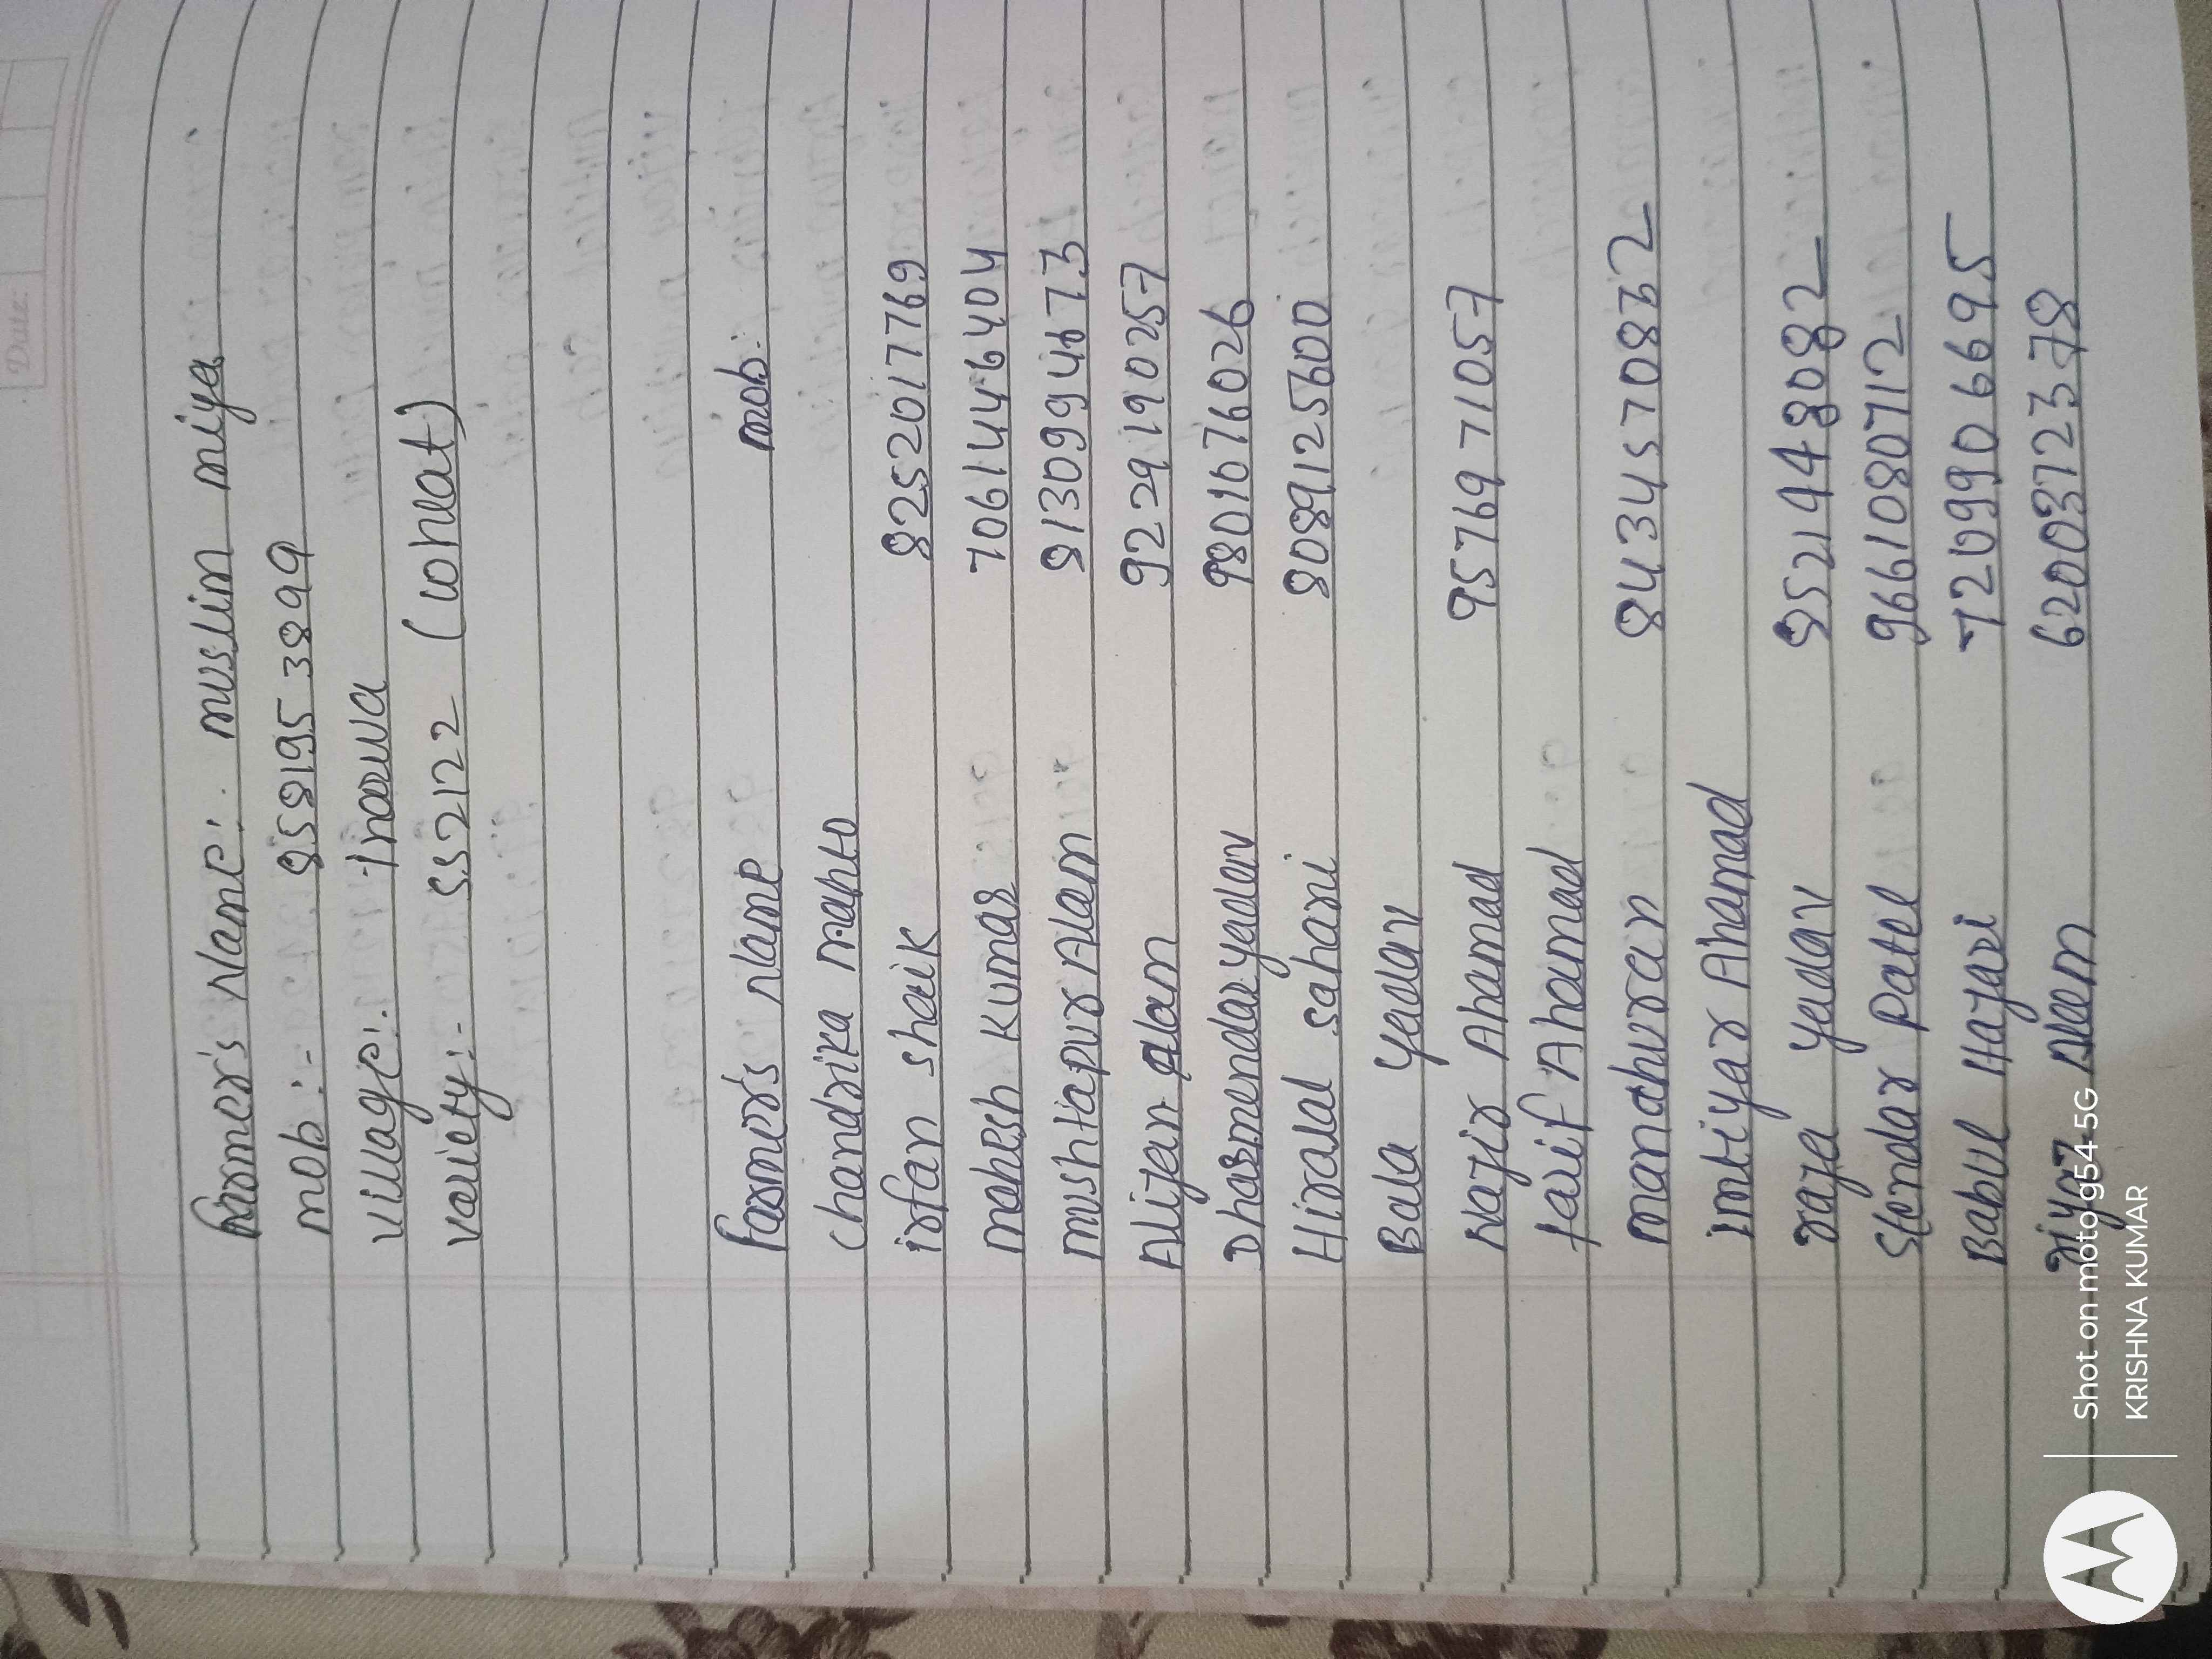 Date:
Farmer's Name:. muslim miya
mob :- 8581953899
village:. Inarwa
variety:- SS2122 (wheat)
Farmer's Name mob:
Chandrika mahto
irfan shaik 8252017769
mahesh Kumar 7061446404
mushtapur Alam 8130994673
Alijan Alam 9229190257
Dharmendar yadav 9801076026
Hiralal sahani 8089125600
Bala yadav
Najir Ahamad 9576971057
tarif Ahamad
manathuran 8434570832
imtiyar Ahamad
raja yadav 9521448082
Slendar Patel 9661080712
Babul Hajari 7209906695
riyaz Alam 6200372378
Shot on moto g54 5G
KRISHNA KUMAR